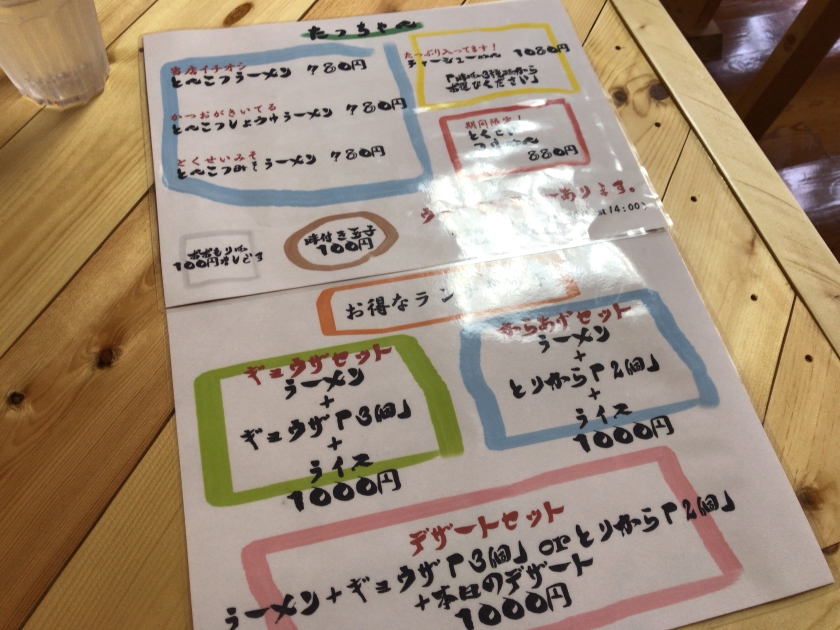 たっちゃん
当店イチオシ
とんこつラーメン 780円
かつおがきいてる
とんこつしょうゆラーメン 780円
とくせいみそ
とんこつみそラーメン 780円
たっぷり入ってます!
チャーシューめん 1080円
お選びください」
期間限定!
880円
あります。
14:00
味付き玉子
100円
大もりは
100円ましです
お得なラン
ギョウザセット
ラーメン
+
ギョウザ「3個」
+
ライス
1000円
からあげセット
ラーメン
+
とりから「2個」
+
ライス
1000円
デザートセット
ラーメン+ギョウザ「3個」orとりから「2個」
+本日のデザート
1000円